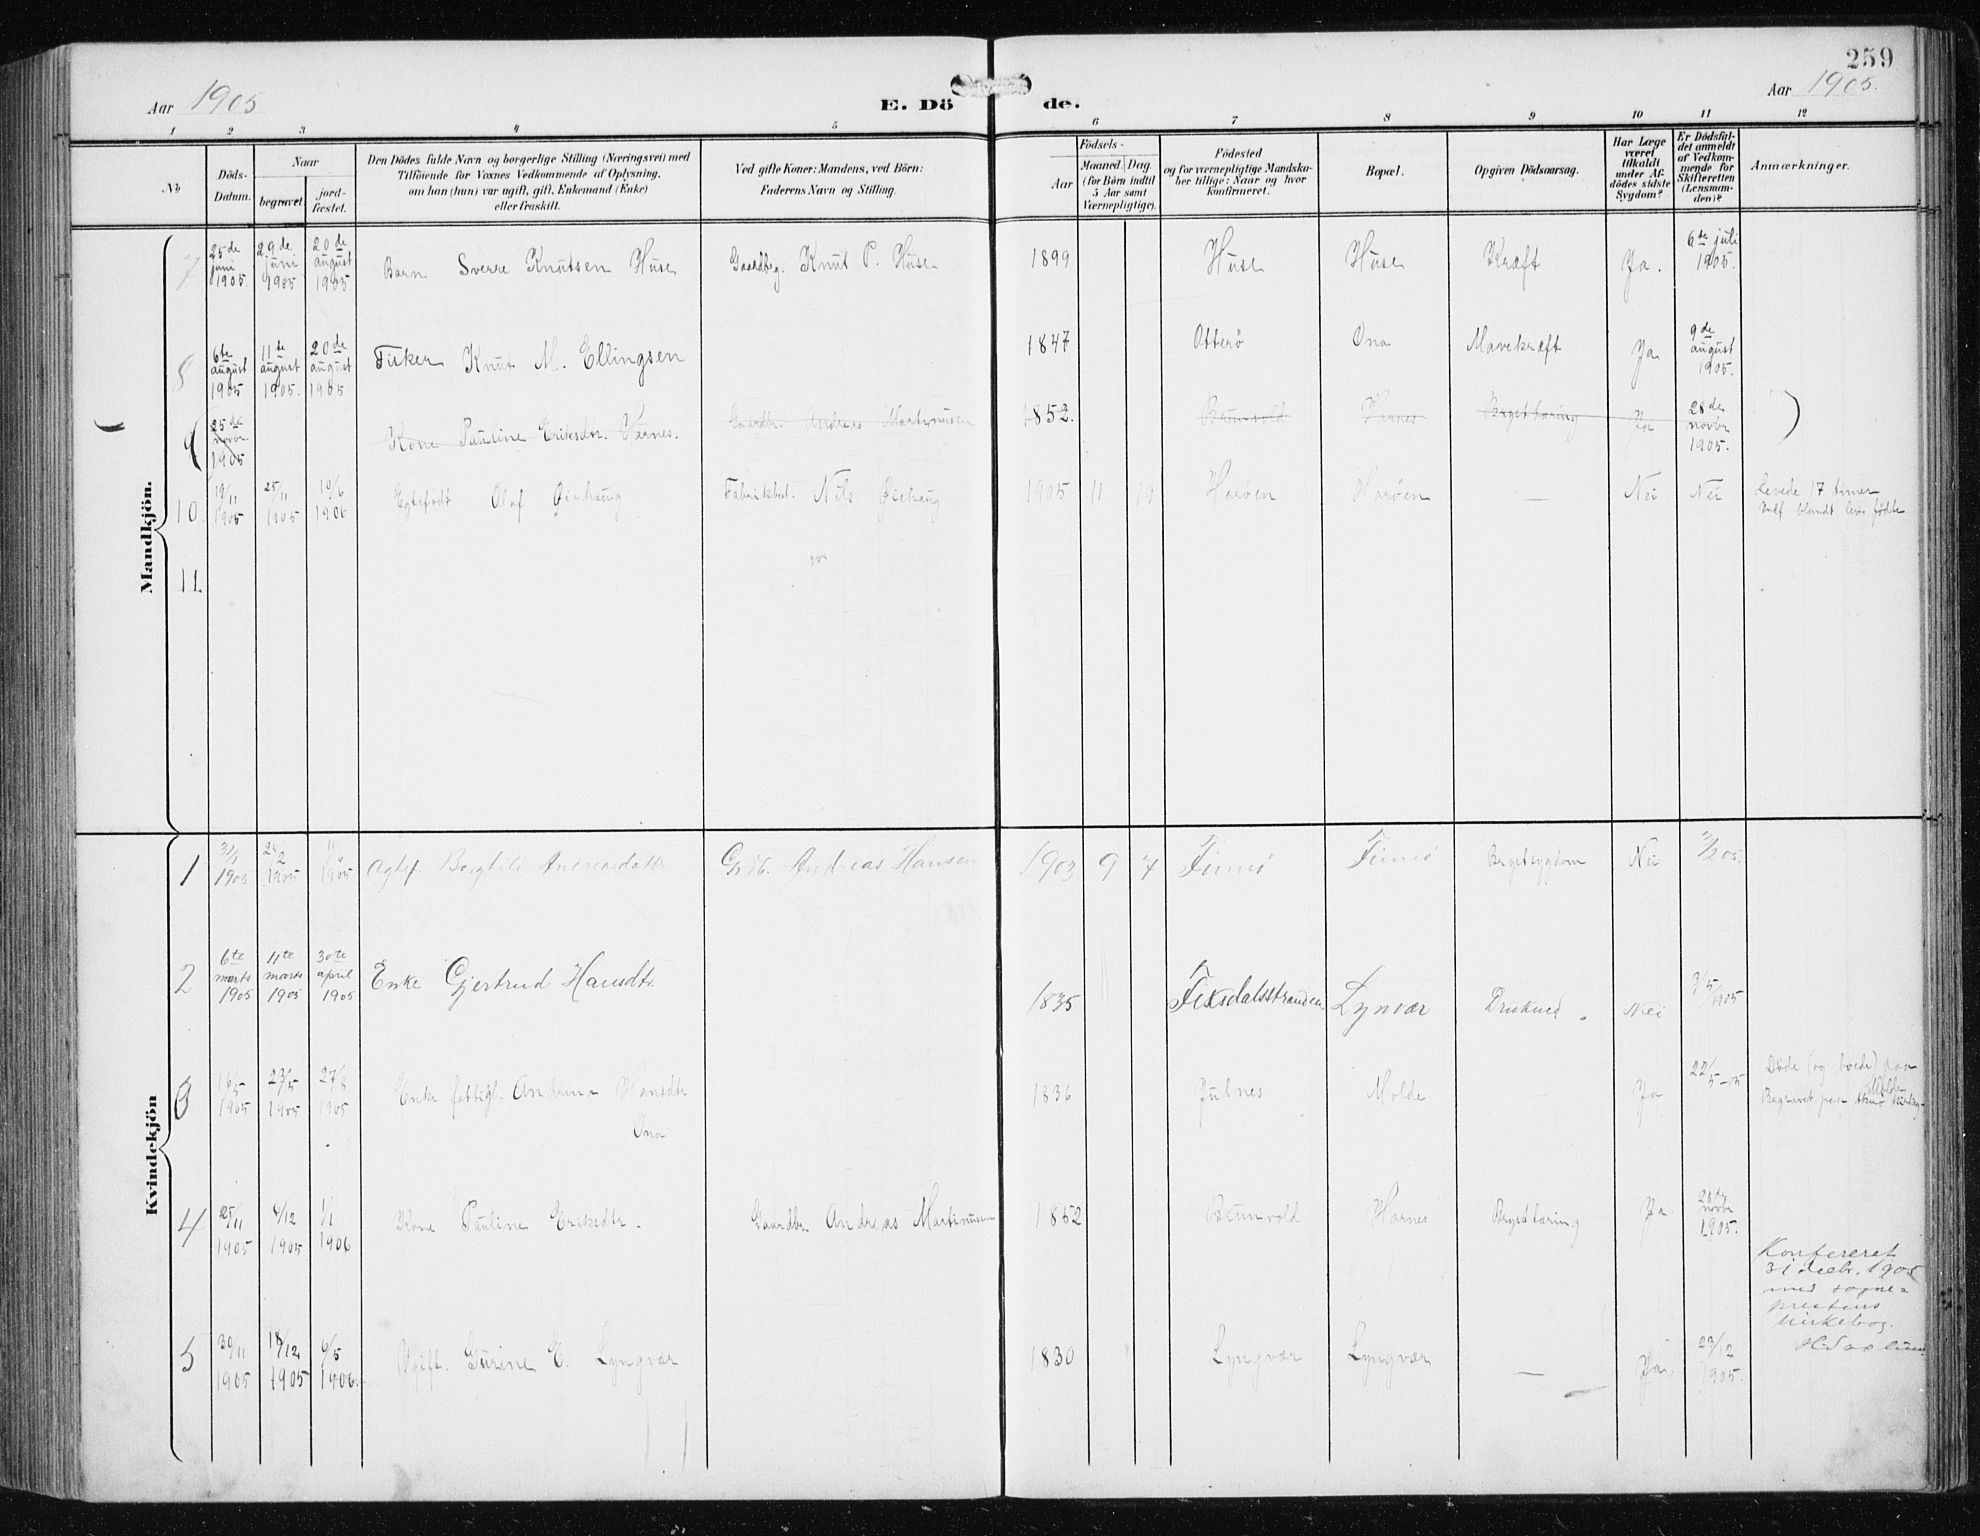 259
Aar 1905
E. Dö
de.
Aar 1905.
1 2 3 4 5 6 7 8 9 10 11 12
No
Döds-
Datum.
Naar
begravet.
jord-
fæstet.
Den Dödes fulde Navn og borgerlige Stilling (Næringsvei) med
Tilföiende for Voxnes Vedkommende af Oplysning,
om han (hun) var ugift, gift, Enkemand (Enke)
eller fraskilt.
Ved gifte Koner: Mandens, ved Börn:
Faderens Navn og Stilling.
Födsels-
Aar
Maaned. Dag.
(for Börn indtil
5 Aar samt
Værnepligtige).
Födested
og for værnepligtige Mandska-
ber tillige: Naar og hvor
konfirmeret.
Bopæl.
Opgiven Dödsaarsag.
Har Læge
været
tilkaldt
under Af-
dödes sidste
Sygdom?
Er Dödsfal-
det anmeldt
af Vedkom-
mende for
Skifteretten
(Lensman-
den)?
Anmærkninger.
Mandkjön.
7 25de juni 1905. 29de juni 1905 20de august 1905 Barn Sverre Knutsen Huse Gaardbg. Knut P. Huse 1899 Huse Huse Kræft Ja. 6te juli 1905.
8 6te august 1905 11te august 1905. 20de august 1905 Fisker Knut M. Ellingsen 1847 Otterö Ona Mavekræft Ja 9de august 1905.
9 25de novbr. 1905 Kone Pauline Eriksdtr. Harnes. Gaardbr. Andreas Martinussen 1852. Brunvold Harnes Brysttæring Ja 28de novbr 1905.
10. 19/11 1905 25/11 1905 10/6 1906 Egtefödt Olaf Öiehaug Fabrikbest. Nils Öiehaug 1905 11 19 Haröen Haröen — Nei Nei Levede 17 timer
Indf. blandt lev. födte
11
Kvindekjön
1 31/1 1905 24/2 1905 1905 Ægtef. Borghild Andreasdatter Grdb. Andreas Hansen 1903 9 4 Finnö Finnö Brystsygdom Nei 3/2 05.
2 6te marts 1905 11te marts 1905 30te april 1905 Enke Gjertrud Hansdtr. 1835 Fixsdalsstranden Lynvær Druknet. Nei 3/5 1905
3 16/5 1905 23/5 1905 27/8 1905 Enke fattigl. Andrina Hansdtr
Ona
1836 Julnes Molde — Ja 22/5-05 Döde (og boede) paa
Molde
Begravet paa
4 25/11 1905 4/12 1905 1/1 1906 Kone Pauline Eriksdtr. Gaardbr. Andreas Martinussen 1852 Brunvold Harnes Brysttæring Ja. 28de novbr 1905.
Konfereret
31 decbr. 1905
med sogne-
prestens
kirkebog.
5 30/11 1905 18/12 1905 6/5 1906. Ugift. Gurine E. Lyngvær 1830 Lyngvær Lyngvær — Ja. 23/12 1905.